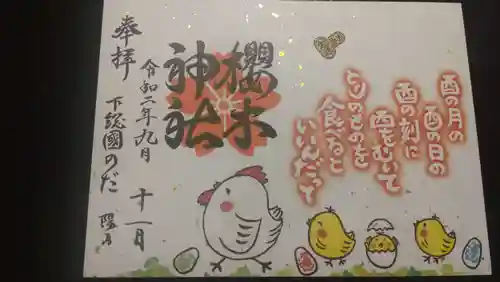 酉の月の
酉の日の
酉の刻に
酉をむいて
とりのものを
食べると
いいんだって
櫻木
神社
令和二年九月
十一日
奉拝
下総國のだ